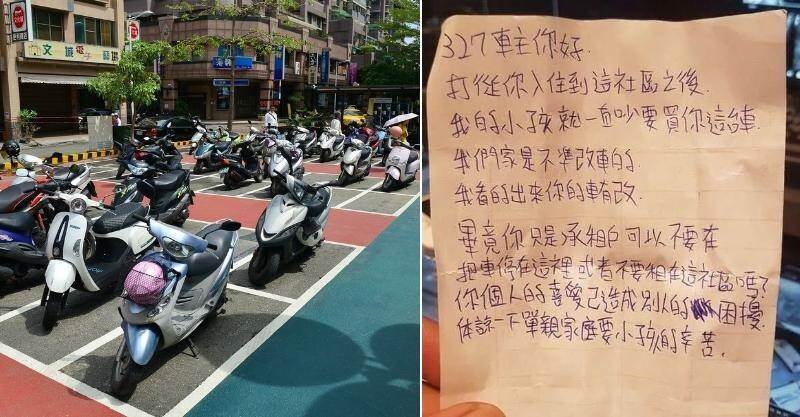 文城電子藝場
327車主你好.
打從你入住到這社區之後.
我的小孩就一直吵要買你這台車.
我們家是不準改車的.
我看的出來你的車有改.
畢竟你只是承租戶可以不要在
把車停在這裡或者不要租在這社區嗎?
你個人的喜愛已造成別人的困擾.
体諒一下單親家庭要小孩的辛苦.